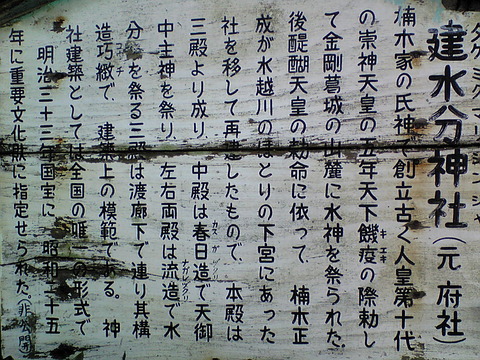 タケミクマリジンジャ
建水分神社（元府社）
楠木家の氏神で創立古く人皇第十代
の崇神天皇の五年天下饑疫の際勅し
キエキ
て金剛葛城の山麓に水神を祭られた。
後醍醐天皇の勅命に依って、楠木正
成が水越川のほとりの下宮にあった
社を移して再建したもので、本殿は
三殿より成り、中殿は春日造で天御
カスガヅクリ
中主神を祭り、左右両殿は流造で水
ナガレヅクリ
分神を祭る三殿は渡廊下で連り其構
造巧緻で、建築上の模範である。神
コウチ
社建築としては全国の唯一の形式で
明治三十三年国宝に、昭和二十五
年に重要文化財に指定せられた。（非公開）